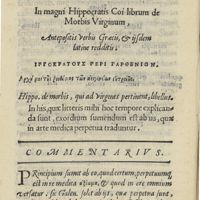 In magni Hippocratis Coi librum de
Morbis Virginum,
Antepositis Verbis Græcis, & ijsdem
latine redditis:
ΙΠΠΟΚΡΑΤΟΥΣ ΠΕΡΙ ΠΑΡΘΕΝΙΩΝ.
Hippo. de morbis, qui ad Virgines pertinent, libellus.
In his, quæ litteris mihi hoc tempore explican-
da sunt, exordium sumendum est ab us, quæ
in arte medica perpetua traduntur.
COMMENTARIVS.
PRincipium sumit ab eo, quod certum, perpetuumq;
est in re medica & quod in ore omnium
versatur. sic Galen. solet ab ijs, quæ perpetua sunt,